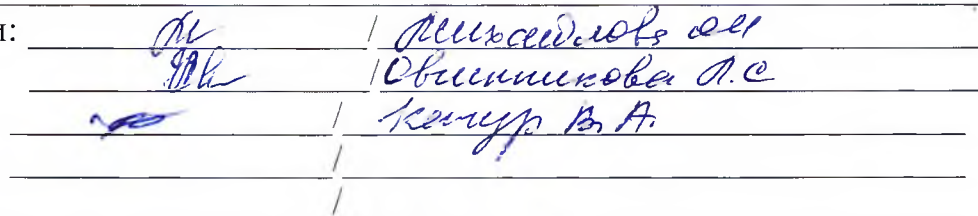 и: / Михайлова ОМ
/ Овчинникова Л.С
/ Качур В.А.
/
/